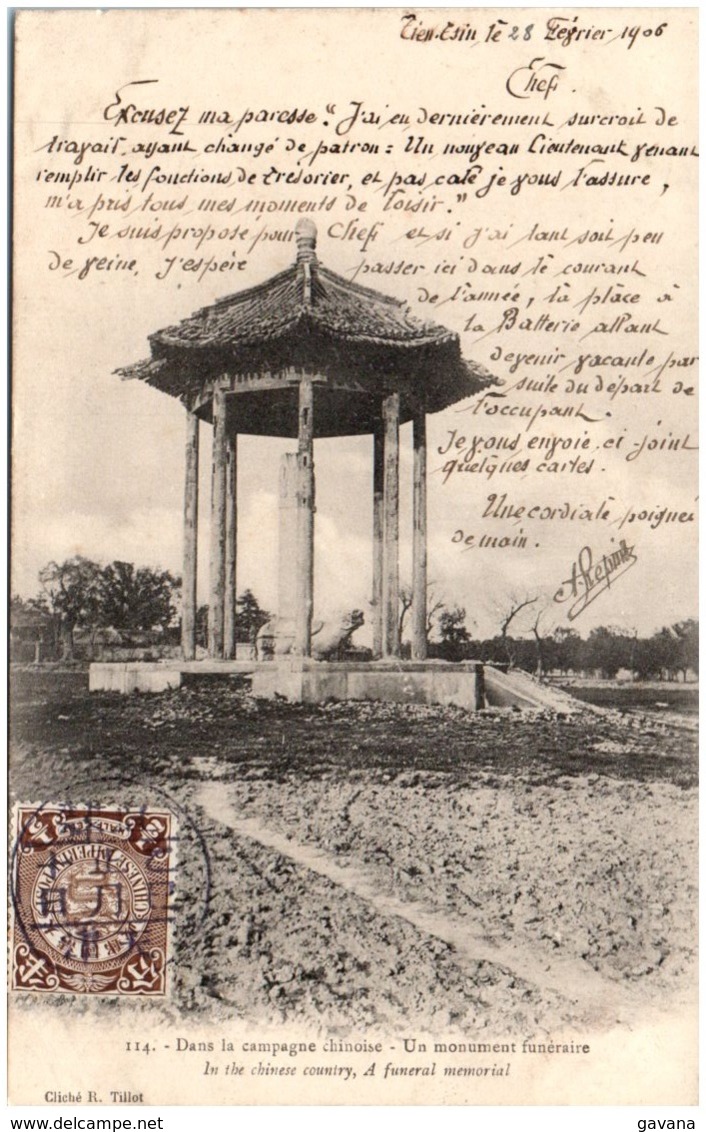 Tien-Tsin, le 28 Février 1906
Chef.
Excusez ma paresse. "J'ai eu dernièrement surcroit de
travail, ayant changé de patron : Un nouveau Lieutenant venant
remplir les fonctions de trésorier, et pas calé je vous l'assure,
m'a pris tous mes moments de loisir."
Je suis proposé pour Chef et si j'ai tant soit peu
de veine, j'espère passer ici dans le courant
de l'année, la place à
la Batterie allant
devenir vacante par
suite du départ de
l'occupant.
Je vous envoie ci-joint
quelques cartes.
Une cordiale poignée
de main.
114. - Dans la campagne chinoise - Un monument funéraire
In the chinese country, A funeral memorial
Cliché R. Tillot
gavana